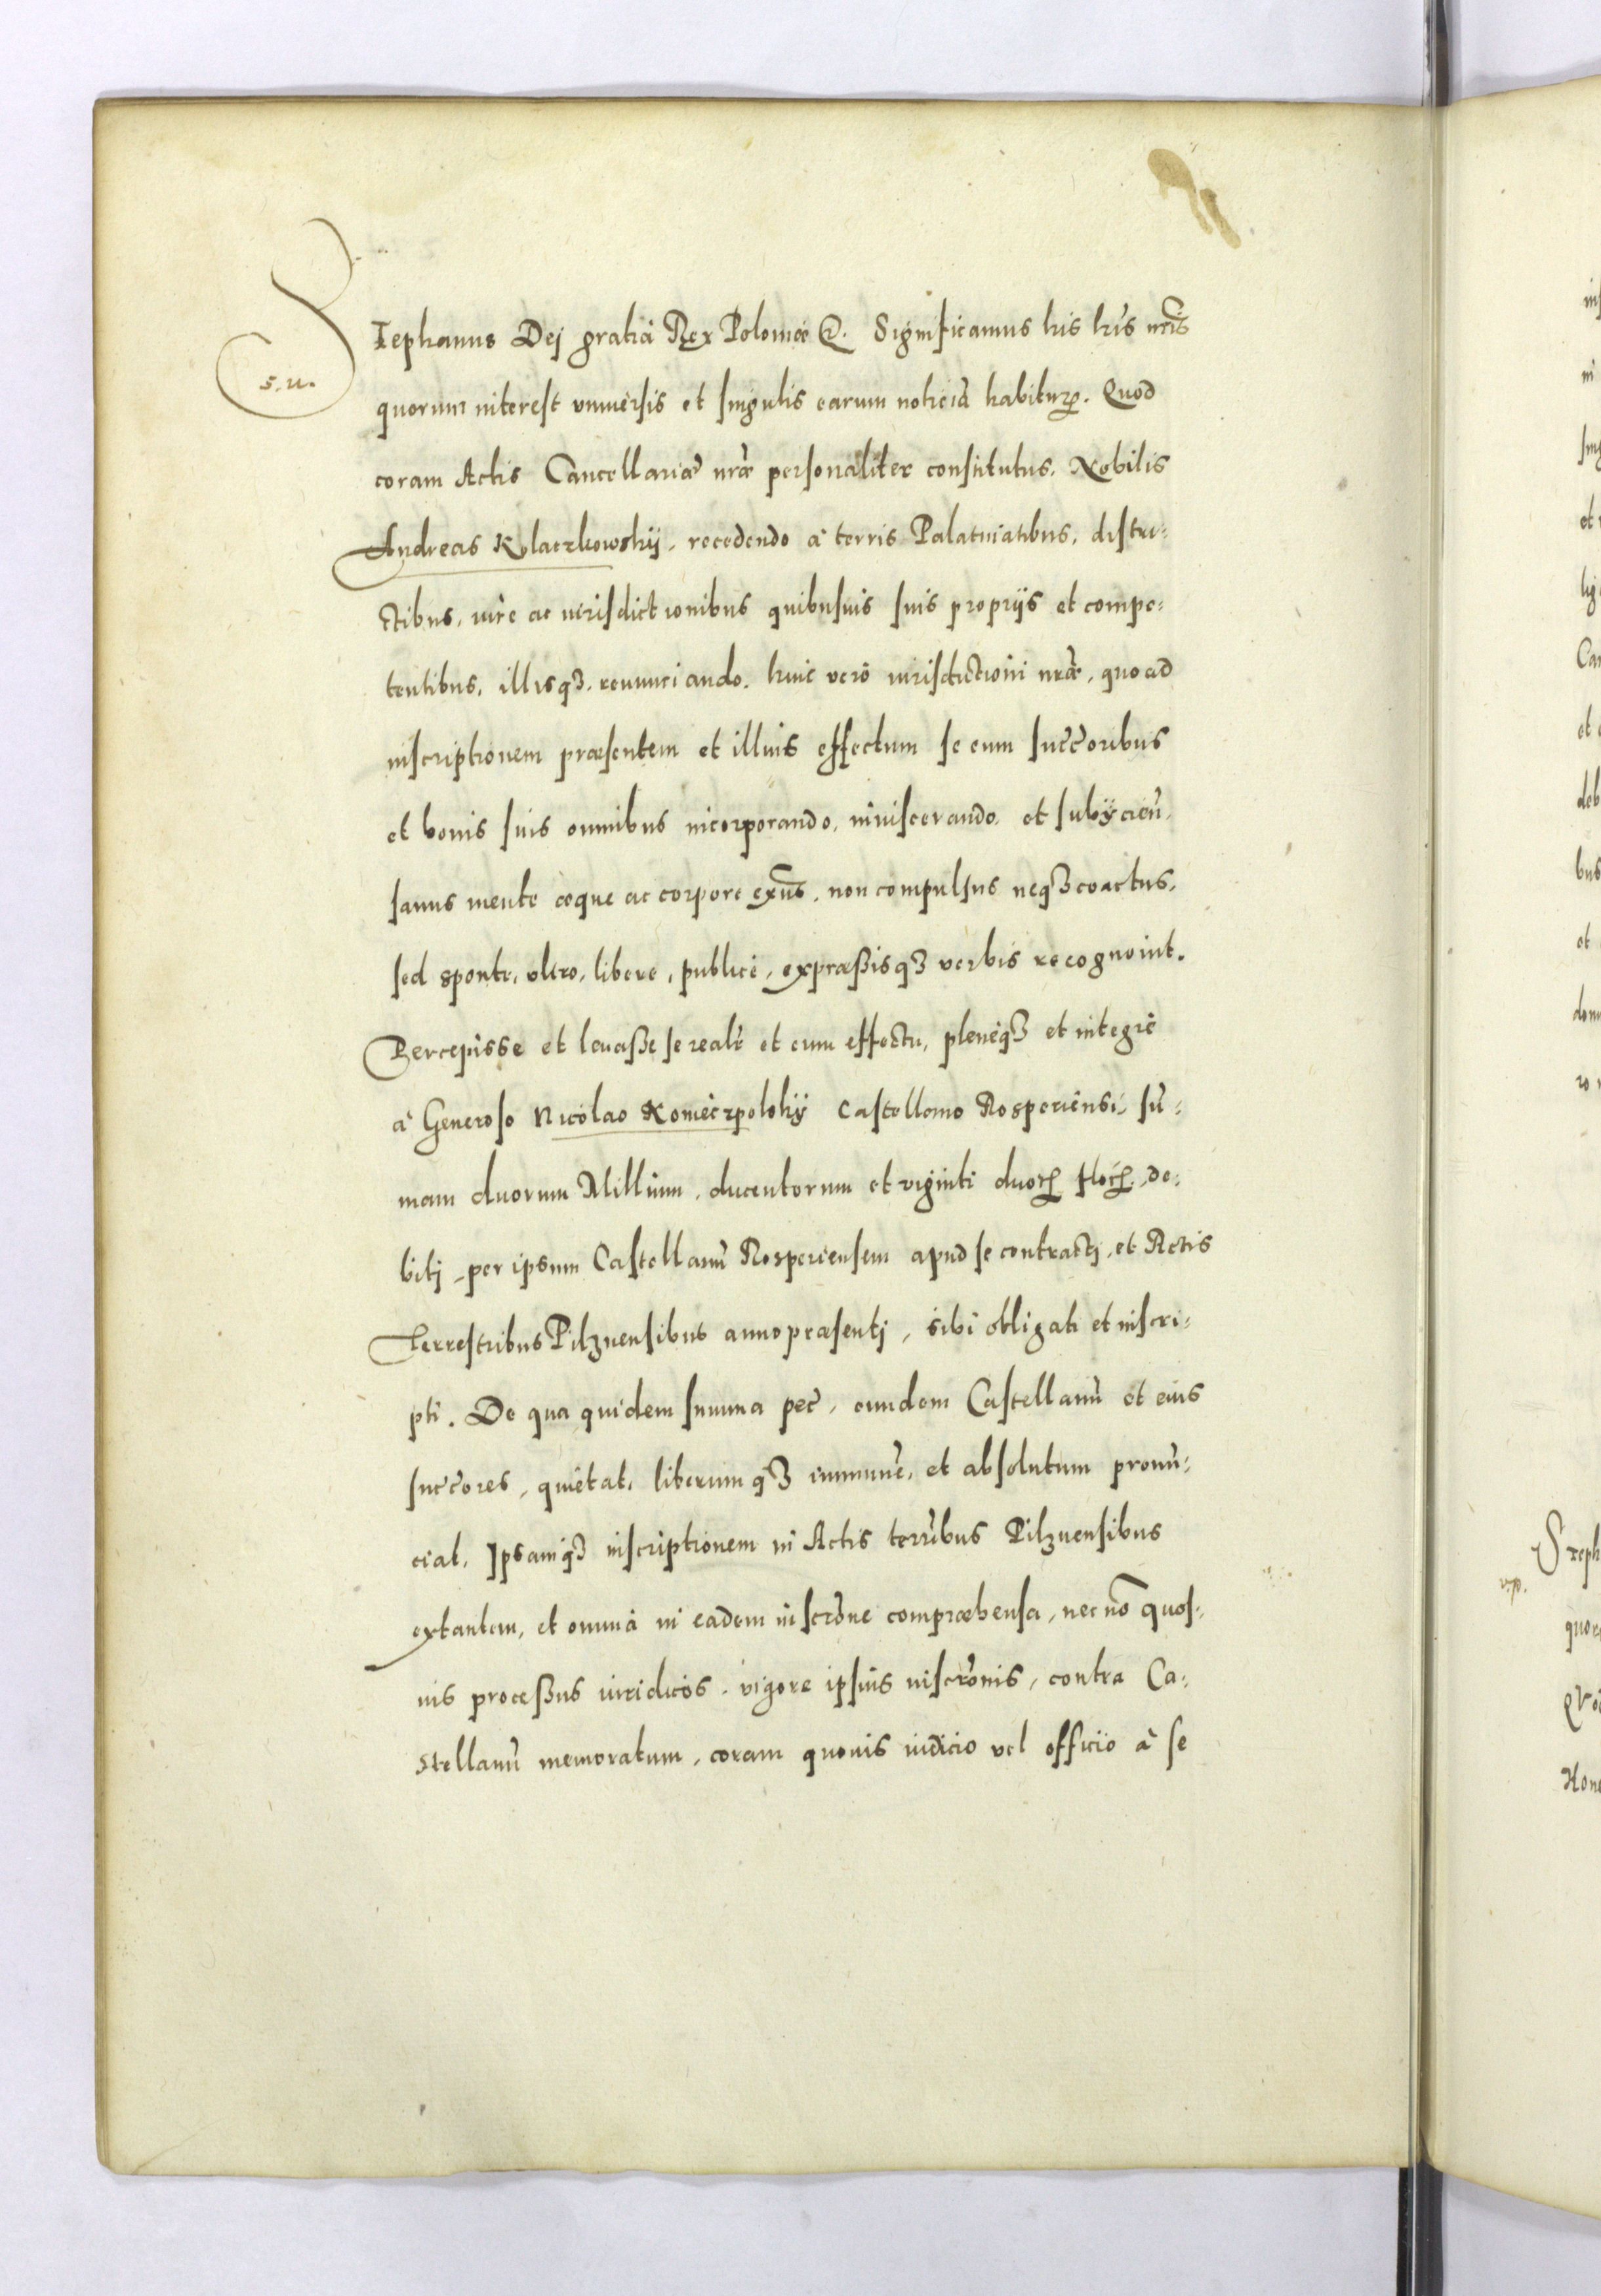 STephanus Dej gratia Rex Poloniæ &c. Significamus his lris nris
s.u.
quorum interest vniuersis et singulis earum noticiã habiturꝭ. Quod
coram Actis Cancellariæ nræ personaliter constitutus. Nobilis
Andreas Kolaczkowskÿ. recedendo à terris Palatinatibus, distri=
ctibus, iure ac iurisdictionibus quibusuis suis proprijs et compe=
tentibus, illisqȝ renunciando. huic verò iurisdictioni nræ, quoad
inscriptionem præsentem et illius effectum se cum succoribus
et bonis suis omnibus incorporando, inuiscerando, et subÿcieñ,
sanus mente æque ac corpore exñs, non compulsus neqȝ coactus,
sed sponte, vltro, libere, publicè, expræßisqȝ verbis recognouit.
Percepisse et leuaße se realr et cum effectu, plenèqȝ et integrè
à Generoso Nicolao Konieczpolskÿ Castellano Rosperiensi, sũ=
mam duorum Millium, ducentorum et viginti duorꝝ florꝝ, de=
bitj per ipsum Castellanũ Rosperiensem apud se contractj, et Actis
Terrestribus Pilznensibus anno præsentj, sibi obligati et inscri=
pti. De qua quidem summa pec, eundem Castellanũ et eius
succores, quietat, liberumqȝ immunẽ, et absolutum pronũ=
ciat, Ipsamqȝ inscriptionem in Actis terribus Pilznensibus
extantem, et omnia in eadem inscrone compræhensa, nec nõ quos=
uis proceßus iuridicos, vigore ipsius inscronis, contra Ca=
stellanũ memoratum, coram quouis iudicio vel officio à se